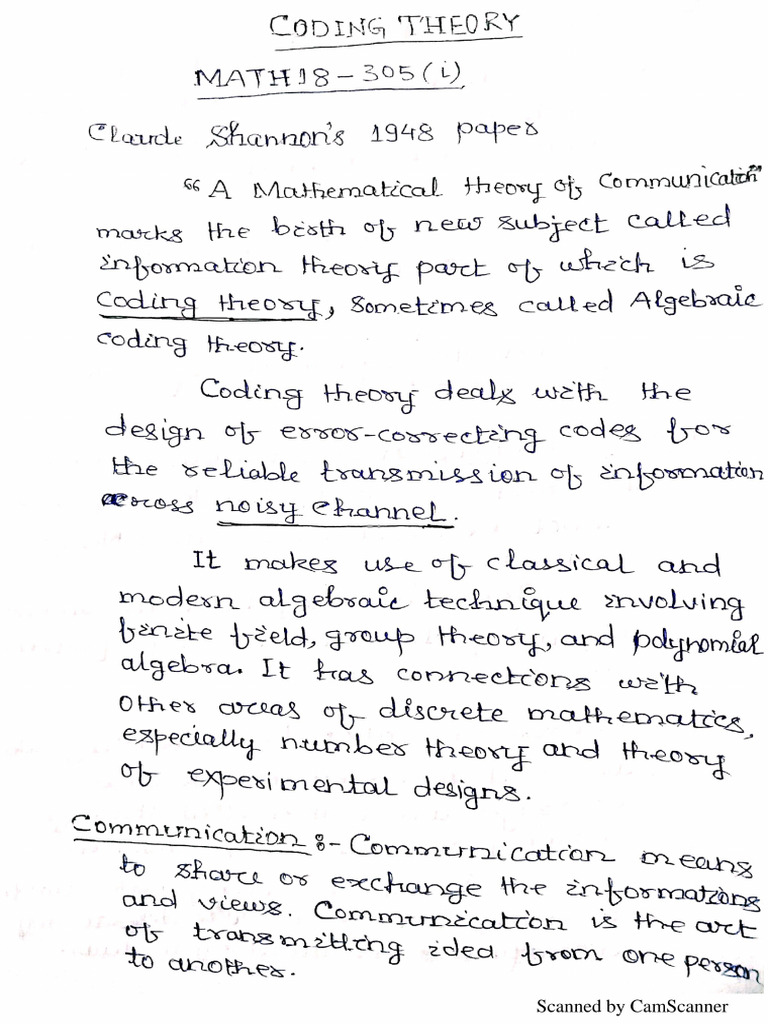 CODING THEORY
MATH18-305(i)
Claude Shannon's 1948 paper
"A Mathematical theory of Communication"
marks the birth of new subject called
information theory part of which is
Coding theory, Sometimes called Algebraic
coding theory.
Coding theory deals with the
design of error-correcting codes for
the reliable transmission of information
across noisy channel.
It makes use of classical and
modern algebraic technique involving
finite field, group theory, and polynomial
algebra. It has connections with
other areas of discrete mathematics,
especially number theory and theory
of experimental designs.
Communication :- Communication means
to share or exchange the informations
and views. Communication is the art
of transmitting ided from one person
to another.
Scanned by CamScanner